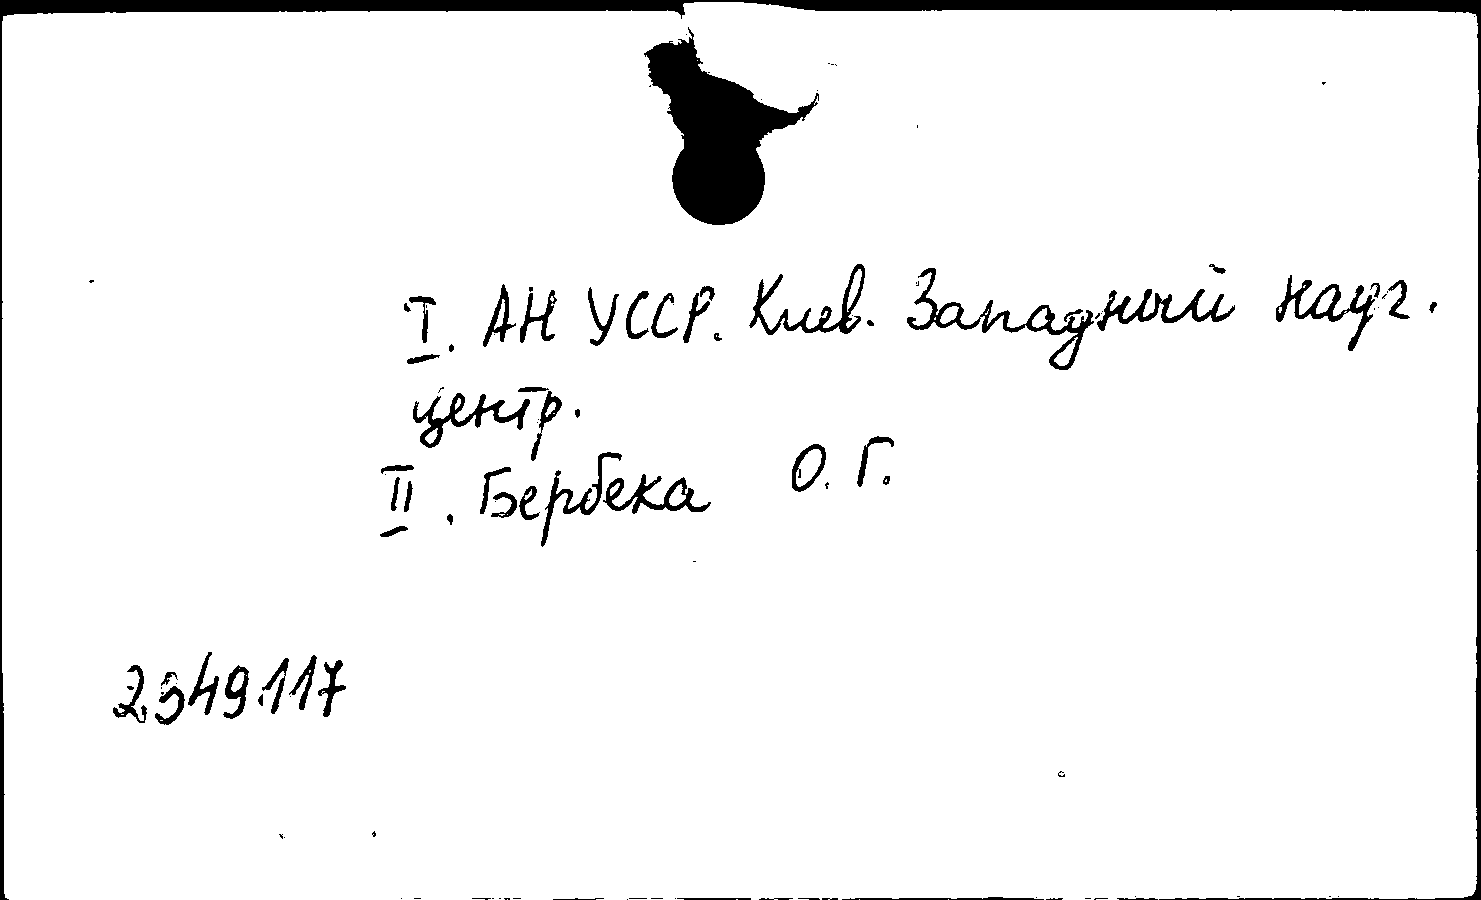 I. АН УССР. Киев. Западный науч.
центр.
II. Бербека О. Г.
2.949.117